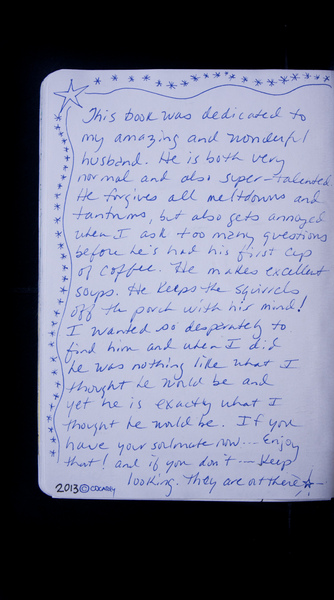 This book was dedicated to
my amazing and wonderful
husband. He is both very
normal and also super-talented
He forgives all meltdowns and
tantrums, but also gets annoyed
when I ask too many questions
before he's had his first cup
of coffee. He makes excellent
soups. He keeps the squirrels
off the porch with his mind!
I wanted so desperately to
find him and when I did
he was nothing like what I
thought he would be and
yet he is exactly what I
thought he would be. If you
have your soulmate now... Enjoy
that! and if you don't --- keep
looking. They are out there
2013 ©